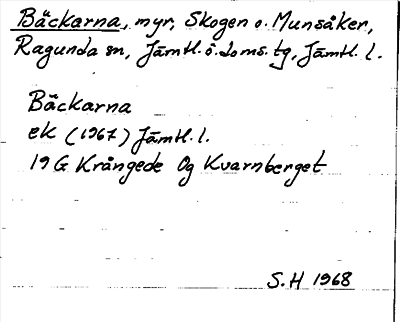 Bäckarna, myr, Skogen o. Munsåker,
Ragunda sn, Jämtl. ö. doms. tg, Jämtl. l.
Bäckarna
ek (1967) Jämtl. l.
19 G Krångede 0g Kvarnberget
S.H 1968